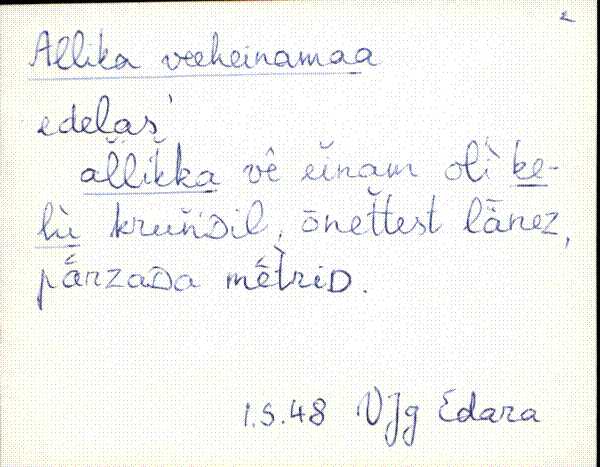 2
Allika veeheinamaa
edelas
al̆lik̆ka vê eĭnam olì ke-
lù krun̆ᴅil, ōnet̆test lānez,
pǟrzaᴅa mētriᴅ.
1.S.48 VJg Edara